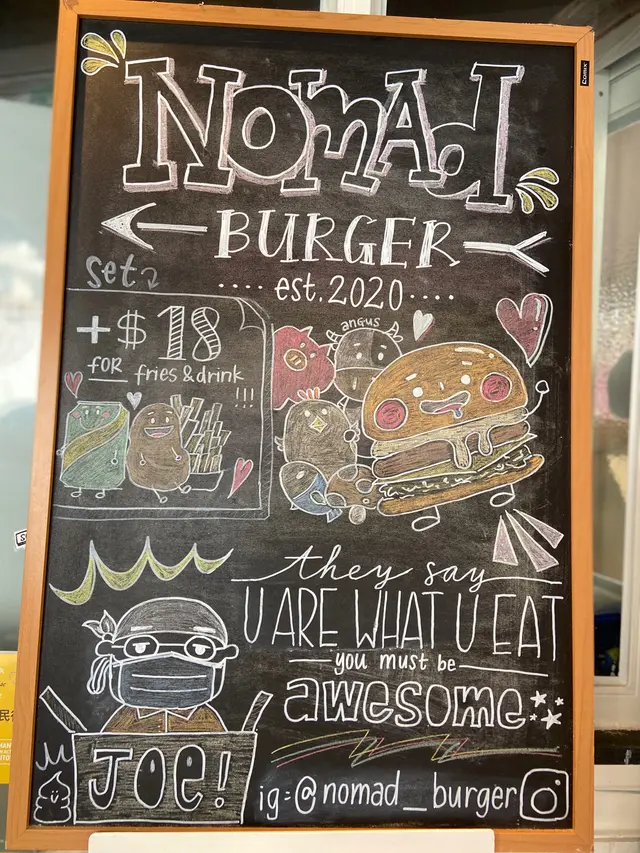 Comix
Nomad
BURGER
....est.2020....
set
+$18
FOR fries & drink
!!!
angus
they say
U ARE WHAT U EAT
you must be
awesome
JOE!
ig:@nomad_burger